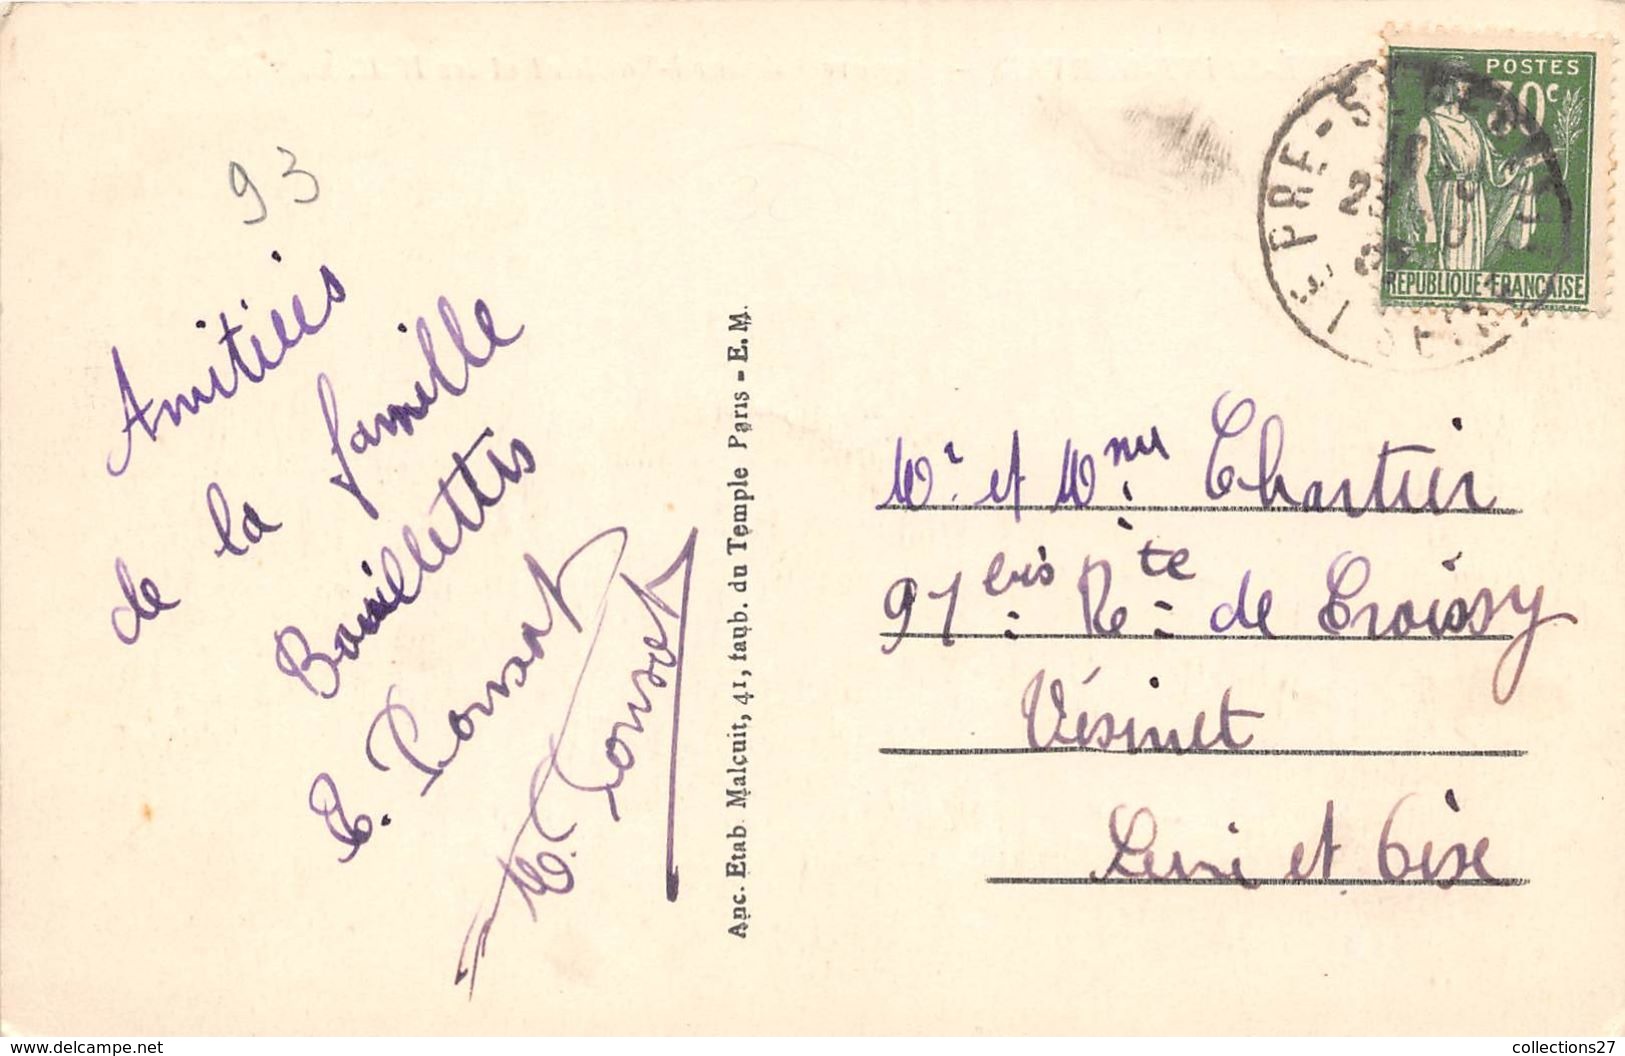 93
Amitiés
de la famille
Bouillettes
E. Ponsat
E. Ponsat
Anc. Etab. Malcuit, 41, faub. du Temple Paris - E. M.
POSTES
30c
REPUBLIQUE FRANÇAISE
LE PRE-ST-GERVAIS
SEINE
Mr. et Mme. Chartier
97 bis Rte de Croissy
Vésinet
Seine et Oise
www.delcampe.net
collections27